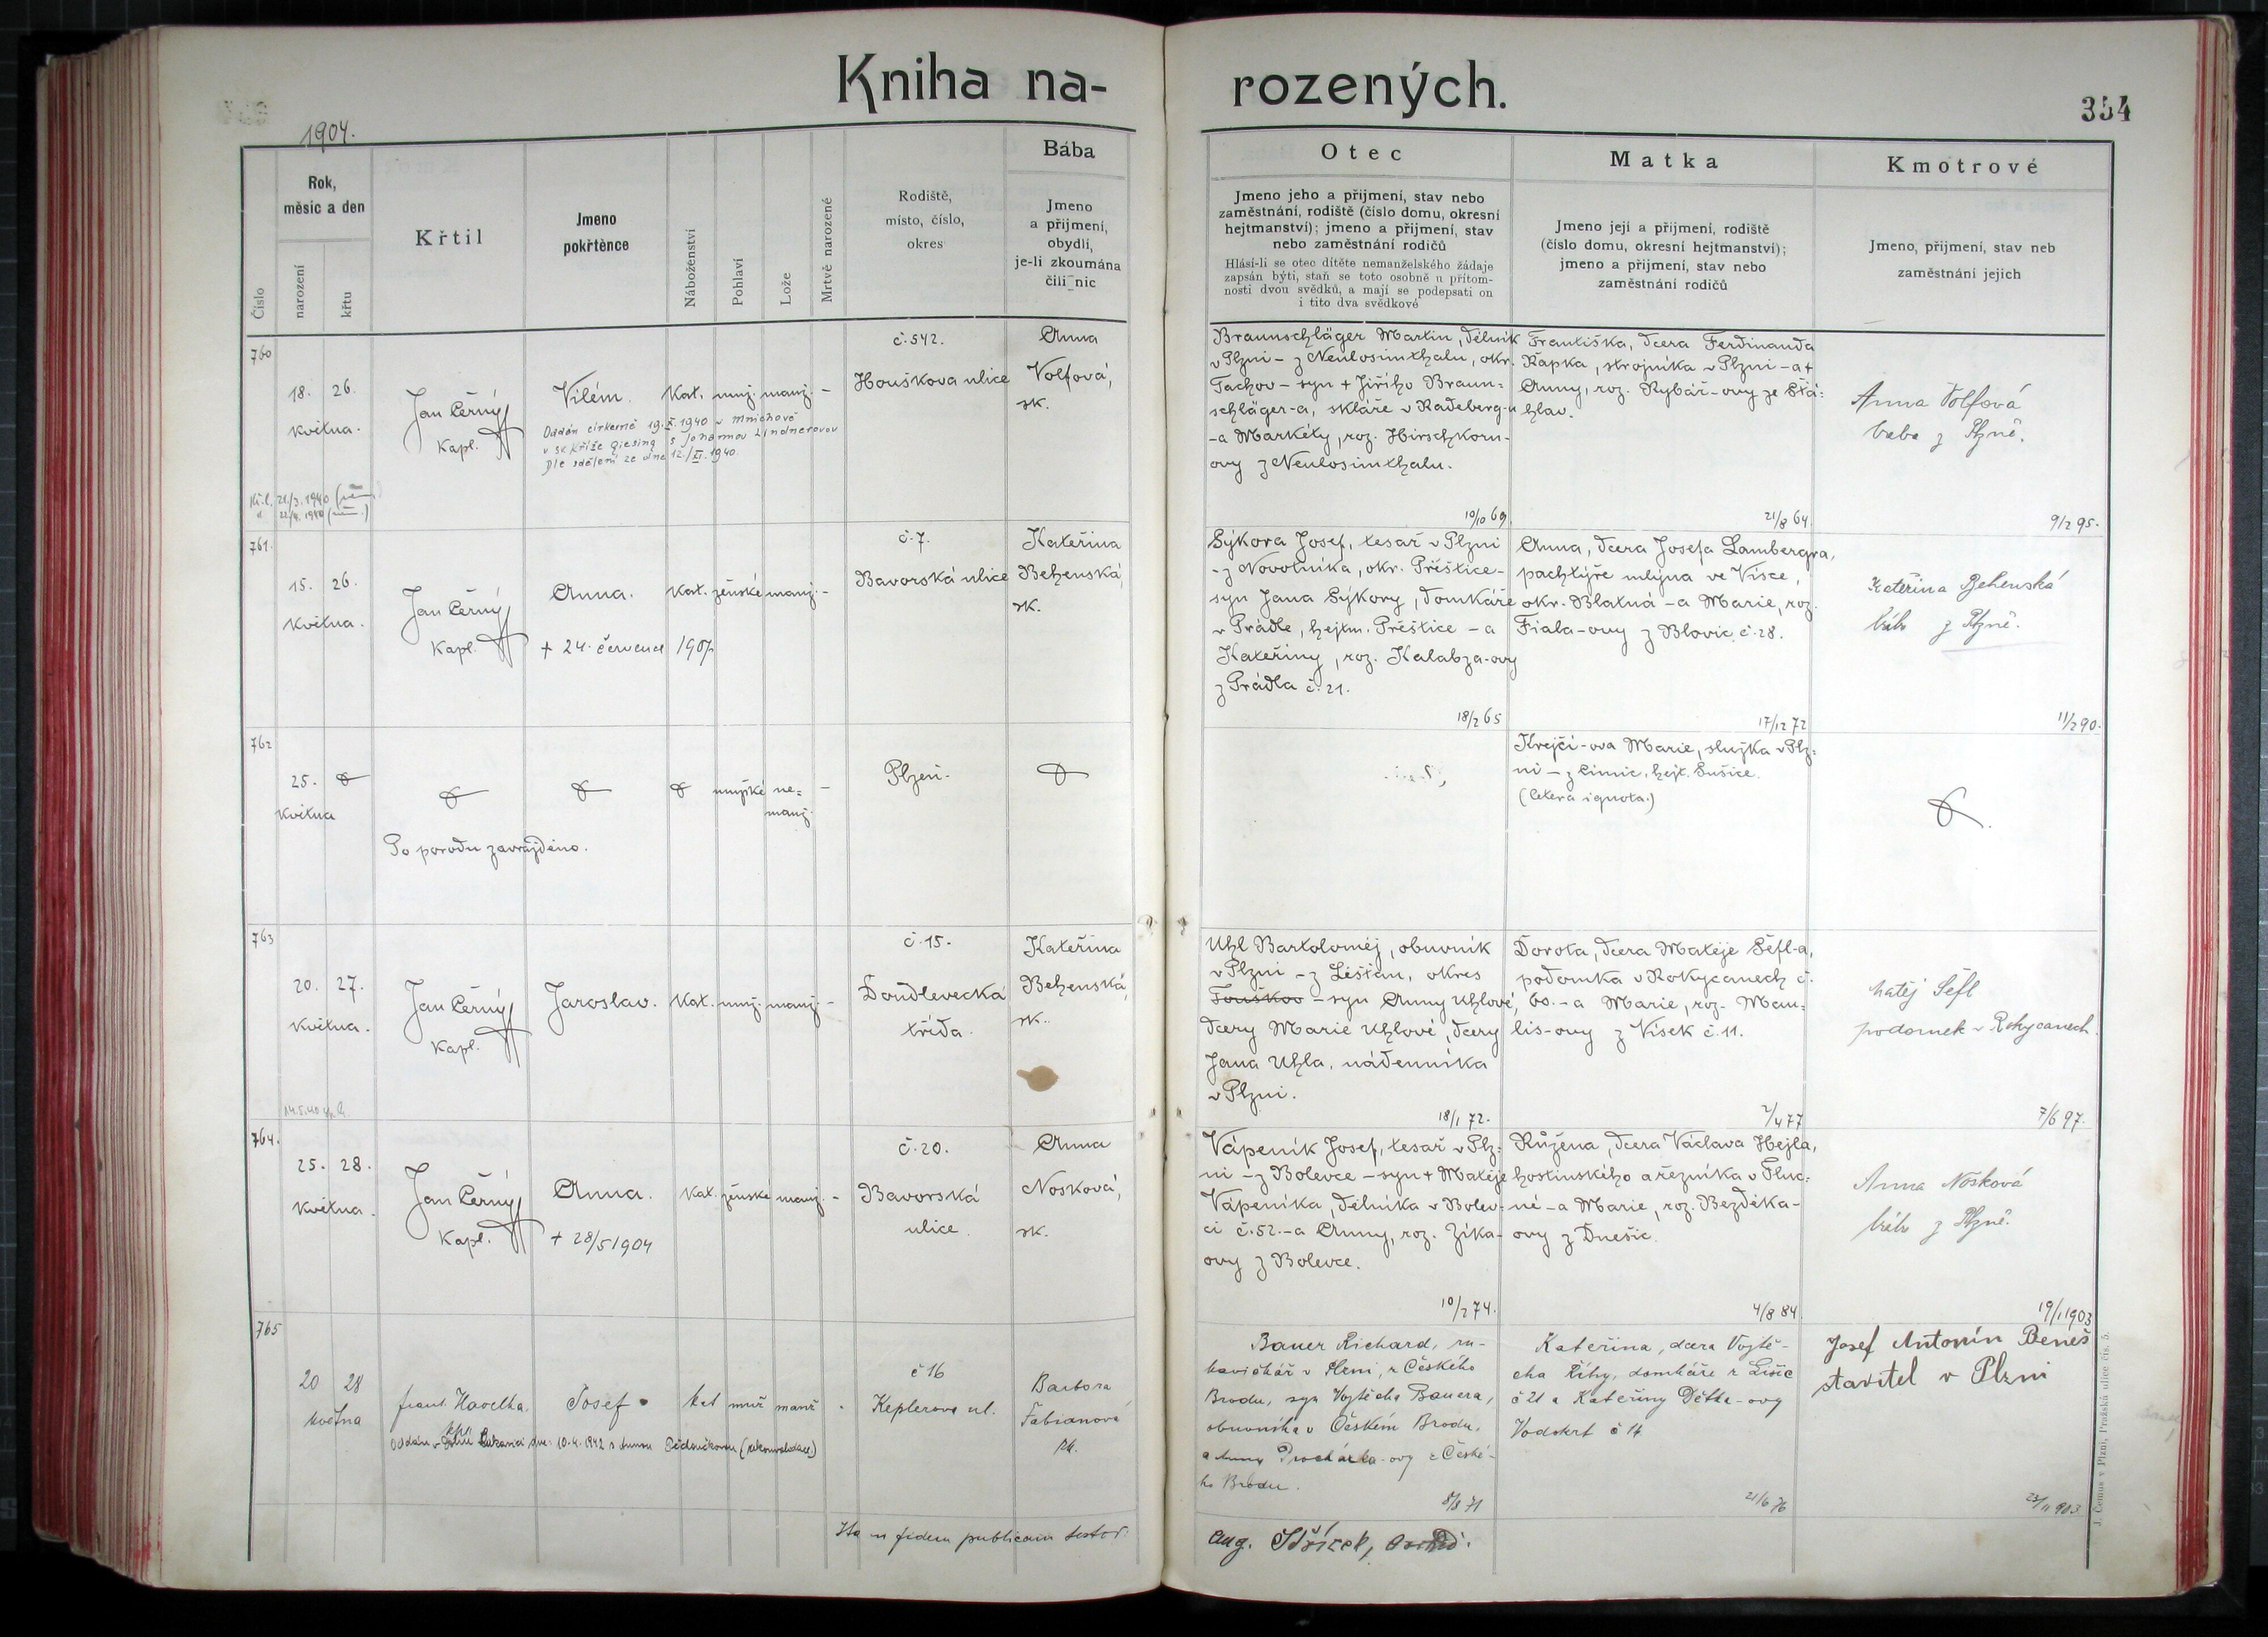 Kniha na-
rozených.
354
1904.
Číslo
Rok,
měsíc a den
narození
křtu
Křtil
Jmeno
pokřtěnce
Náboženství
Pohlaví
Lože
Mrtvě narozené
Rodiště,
místo, číslo,
okres
Bába
Jmeno
a přijmení,
obydlí,
je-li zkoumána
čili nic
Otec
Jmeno jeho a přijmení, stav nebo
zaměstnání, rodiště (číslo domu, okresní
hejtmanství); jmeno a přijmení, stav
nebo zaměstnání rodičů
Hlásí-li se otec dítěte nemanželského žádaje
zapsán býti, staň se toto osobně u přítom-
nosti dvou svědků, a mají se podepsati on
i tito dva svědkové
Matka
Jmeno její a přijmení, rodiště
(číslo domu, okresní hejtmanství);
jmeno a přijmení, stav nebo
zaměstnání rodičů
Kmotrové
Jmeno, přijmení, stav neb
zaměstnání jejich
760
18. 26.
května.
Jan Černý
Kapl.
Vilém.
Oddán církevně 19.X.1940 v Mnichově
v sv. Kříže Giesing s Johannou Lindnerovou
Dle sdělení ze dne 12./XI.1940.
21/3. 1940
22/4. 1940
Kat. muž. manž. -
č. 542.
Houškova ulice
Anna
Volfová,
zk.
Braunschläger Martin, dělník
v Plzni - z Neulosimthalu, okr.
Tachov - syn + Jiřího Braun-
schläger-a, skláře v Radeberg-u
-a Markéty, roz. Hirschkorn-
ovy z Neulosimthalu.
10/10 69.
Františka, dcera Ferdinanda
Řapka, strojníka v Plzni - a +
Anny, roz. Rybář-ovy ze Stá-
hlav.
21/8 64.
Anna Volfová
baba z Plzně.
9/2 95.
761.
15. 26.
května.
Jan Černý
Kapl.
Anna.
+ 24. července 1907
Kat. ženské manž. -
č. 7.
Bavorská ulice
Kateřina
Behenská,
zk.
Sýkora Josef, tesař v Plzni
- z Novotníka, okr. Přeštice -
syn Jana Sýkory, domkáře
v Prádle, hejtm. Přeštice - a
Kateřiny, roz. Kalabza-ovy
z Prádla č. 21.
18/2 65
Anna, dcera Josefa Lambergra,
pachtýře mlýna ve Vísce,
okr. Blatná - a Marie, roz.
Fiala-ovy z Blovic č. 28.
17/12 72
Kateřina Behenská
bába z Plzně.
11/2 90.
762
25.
května
Po porodu zavražděno.
mužské ne-
manž. -
Plzeň.
Krejčí-ova Marie, služka v Plz-
ni - z Cimic, hejt. Sušice.
(cetera ignota.)
763
20. 27.
května.
14.5.40
Jan Černý
Kapl.
Jaroslav.
Kat. muž. manž. -
č. 15.
Doudlevecká
třída.
Kateřina
Behenská,
zk.
Uhl Bartoloměj, obuvník
v Plzni - z Líšťan, okres
Touškov - syn Anny Uhlové,
dcery Marie Uhlové, dcery
Jana Uhla, nádenníka
v Plzni.
18/1 72.
Dorota, dcera Matěje Šefl-a,
podomka v Rokycanech č.
60. - a Marie, roz. Mau-
lis-ovy z Vísek č. 11.
2/4 77
Matěj Šefl
podomek v Rokycanech.
7/6 97.
764.
25. 28.
května.
Jan Černý
Kapl.
Anna.
+ 28/5 1904
Kat. ženské manž. -
č. 20.
Bavorská
ulice.
Anna
Nosková,
zk.
Vápeník Josef, tesař v Plz-
ni - z Bolevce - syn + Matěje
Vápeníka, dělníka v Bolev-
ci č. 52. - a Anny, roz. Zíka-
ovy z Bolevce.
10/2 74.
Růžena, dcera Václava Hejla,
hostinského a řezníka v Tluc-
né - a Marie, roz. Bezděka-
ovy z Dnešic.
4/8 84.
Anna Nosková
bába z Plzně.
19/1 1903
765
20 28
května
frant. Havelka,
kpl.
Josef
kat muž manž
č 16
Keplerova ul.
Barbora
Fabianová
zk.
Bauer Richard, ru-
kavičkář v Plzni, z Českého
Brodu, syn Vojtěcha Bauera,
obuvníka v Českém Brodu,
a Anny Procházka-ovy z České-
ho Brodu.
8/3 71
Kateřina, dcera Vojtě-
cha Říhy, domkáře z Lišic
č 21 a Kateřiny Dětka-ovy
Vodokrt č 14
21/6 76
Josef Antonín Beneš
stavitel v Plzni
23/11 903
Ita in fidem publicam testor:
Aug.
J. Čemus v Plzni, Pražská ulice čís. 5.